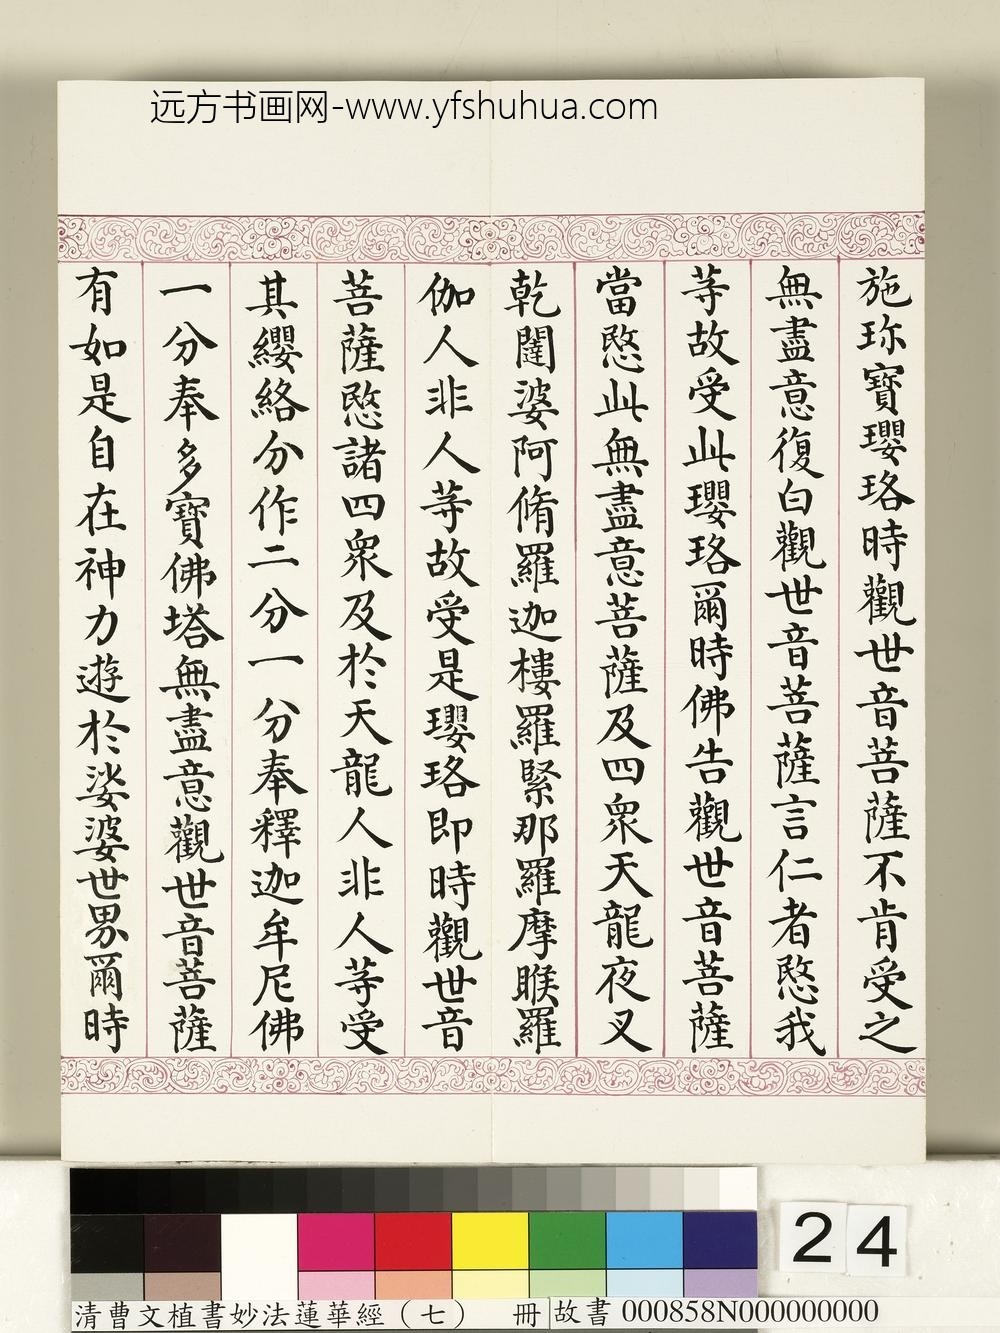 远方书画网-www.yfshuhua.com
施珎寶瓔珞時觀世音菩薩不肯受之
無盡意復白觀世音菩薩言仁者愍我
等故受此瓔珞爾時佛告觀世音菩薩
當愍此無盡意菩薩及四衆天龍夜叉
乾闥婆阿脩羅迦樓羅緊那羅摩睺羅
伽人非人等故受是瓔珞即時觀世音
菩薩愍諸四衆及於天龍人非人等受
其纓絡分作二分一分奉釋迦牟尼佛
一分奉多寶佛塔無盡意觀世音菩薩
有如是自在神力遊於娑婆世界爾時
24
清曹文植書妙法蓮華經（七） 冊 故書 000858N000000000